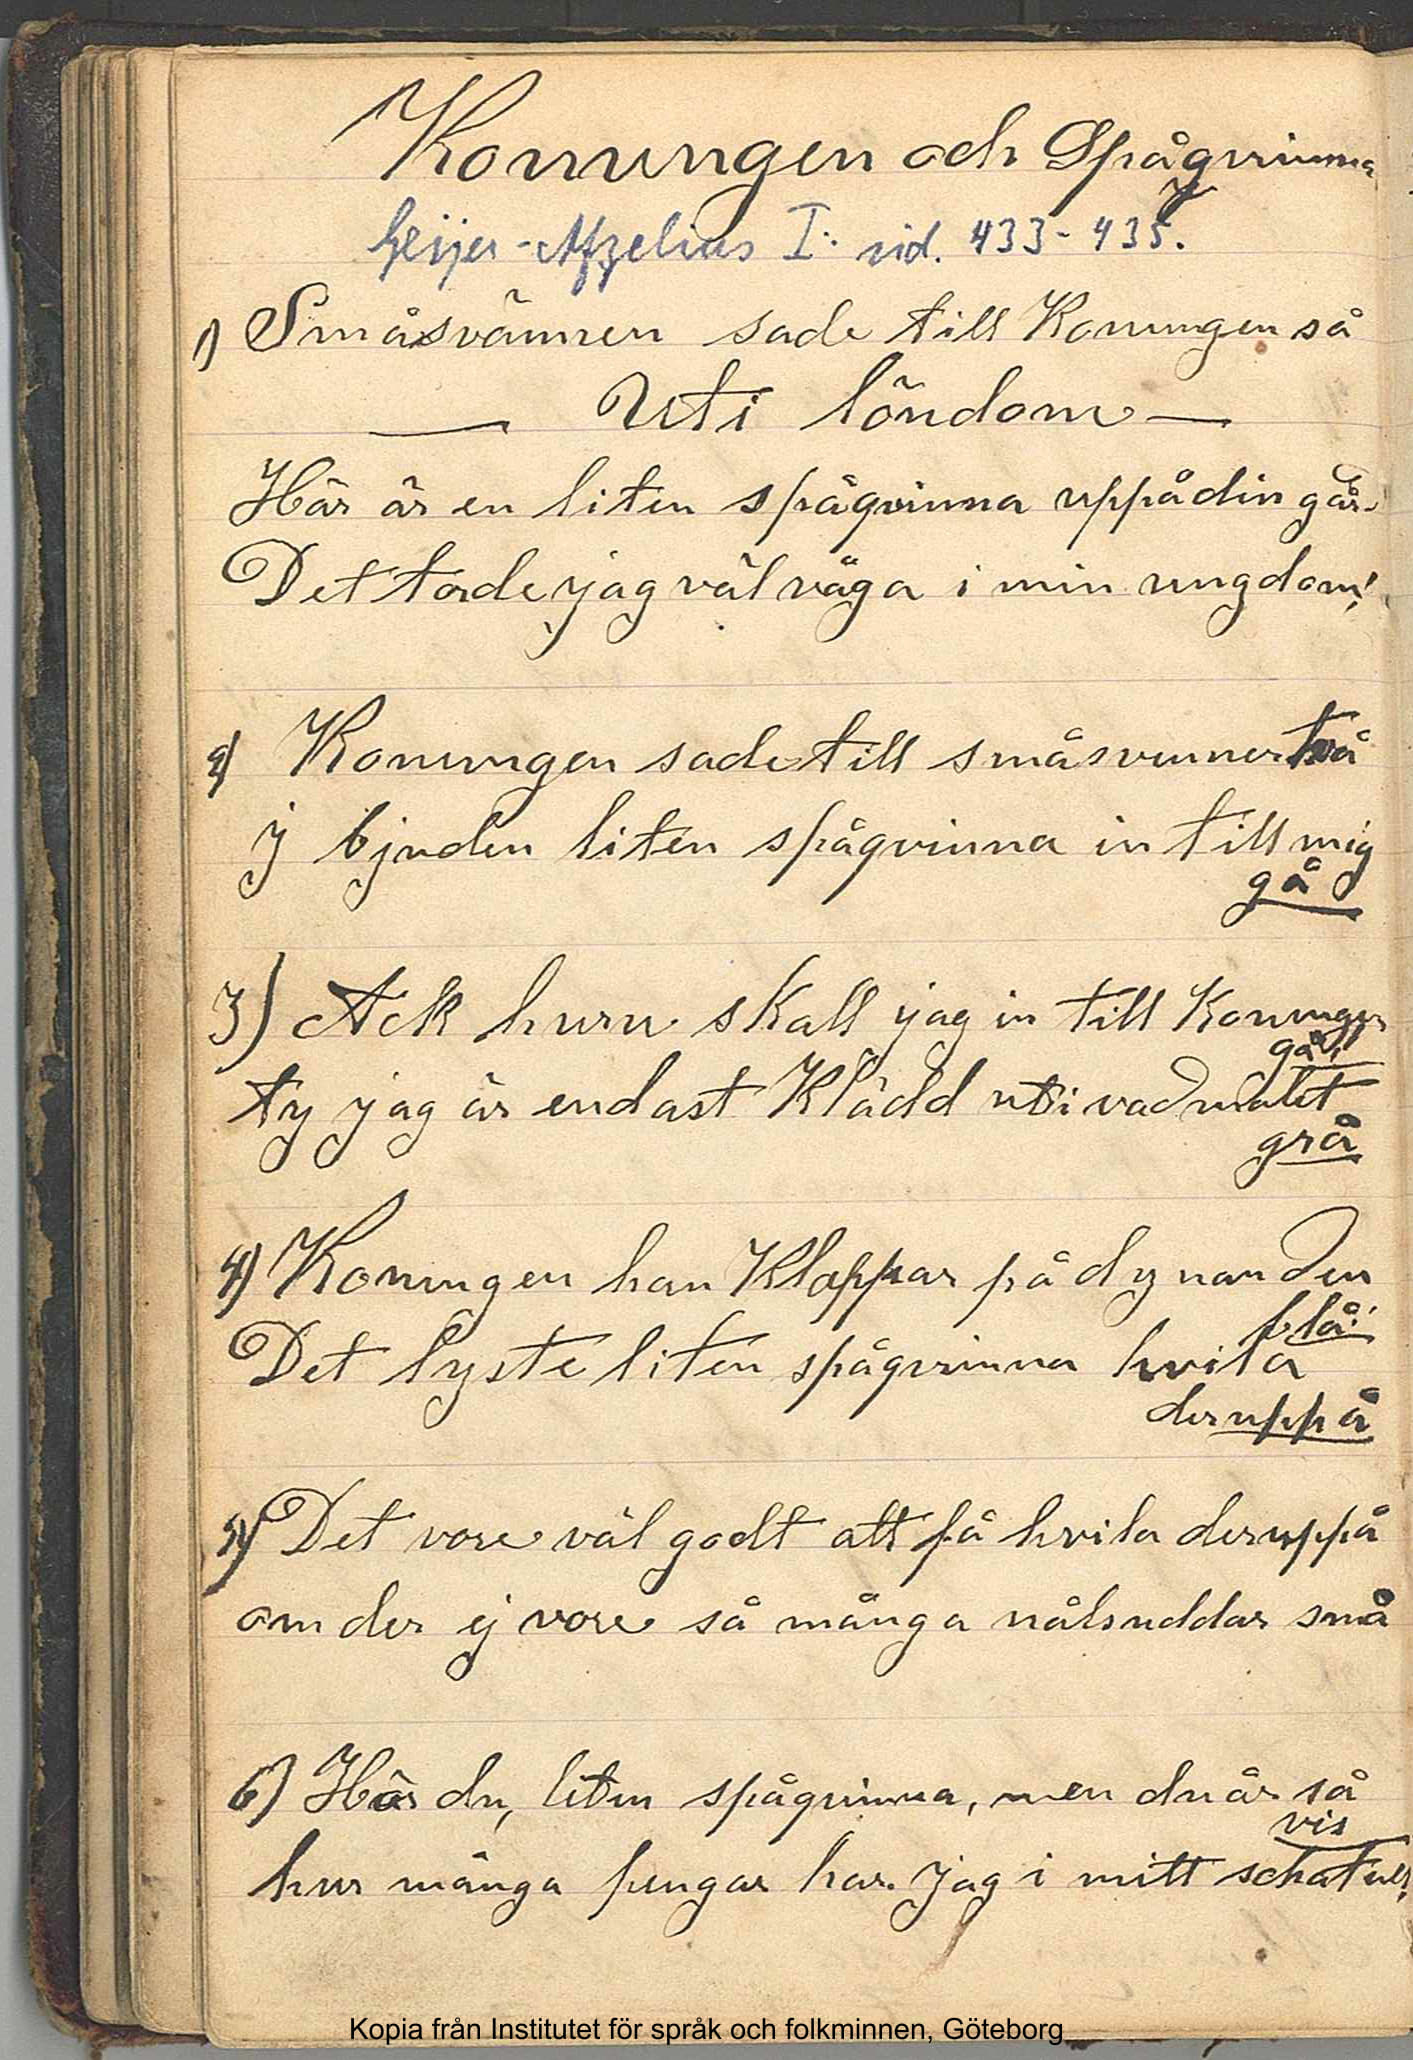 Konungen och Spågvinna
Geijer-Afzelius I: sid. 433-435.
1) Småsvännen sade till Konungen så
— Uti löndom —
Här är en liten spågvinna uppå din går.
Det torde jag väl våga i min ungdom!
2) Konungen sade till småsvenner två
J bjuden liten spågvinna in till mig
gå
3) Ack huru skall jag in till Konungen
gå!
ty jag är endast Klädd uti vadmalet
grå
4) Konungen han Klappar på dynan den
blå!
Det lyste liten spågvinna hvila
deruppå
5) Det vore väl godt att få hvila deruppå
om der ej vore så många nålsuddar små
6) Hör du, liten spågvinna, men du är så
vis
hur många pengar har jag i mitt schatull,
Kopia från Institutet för språk och folkminnen, Göteborg